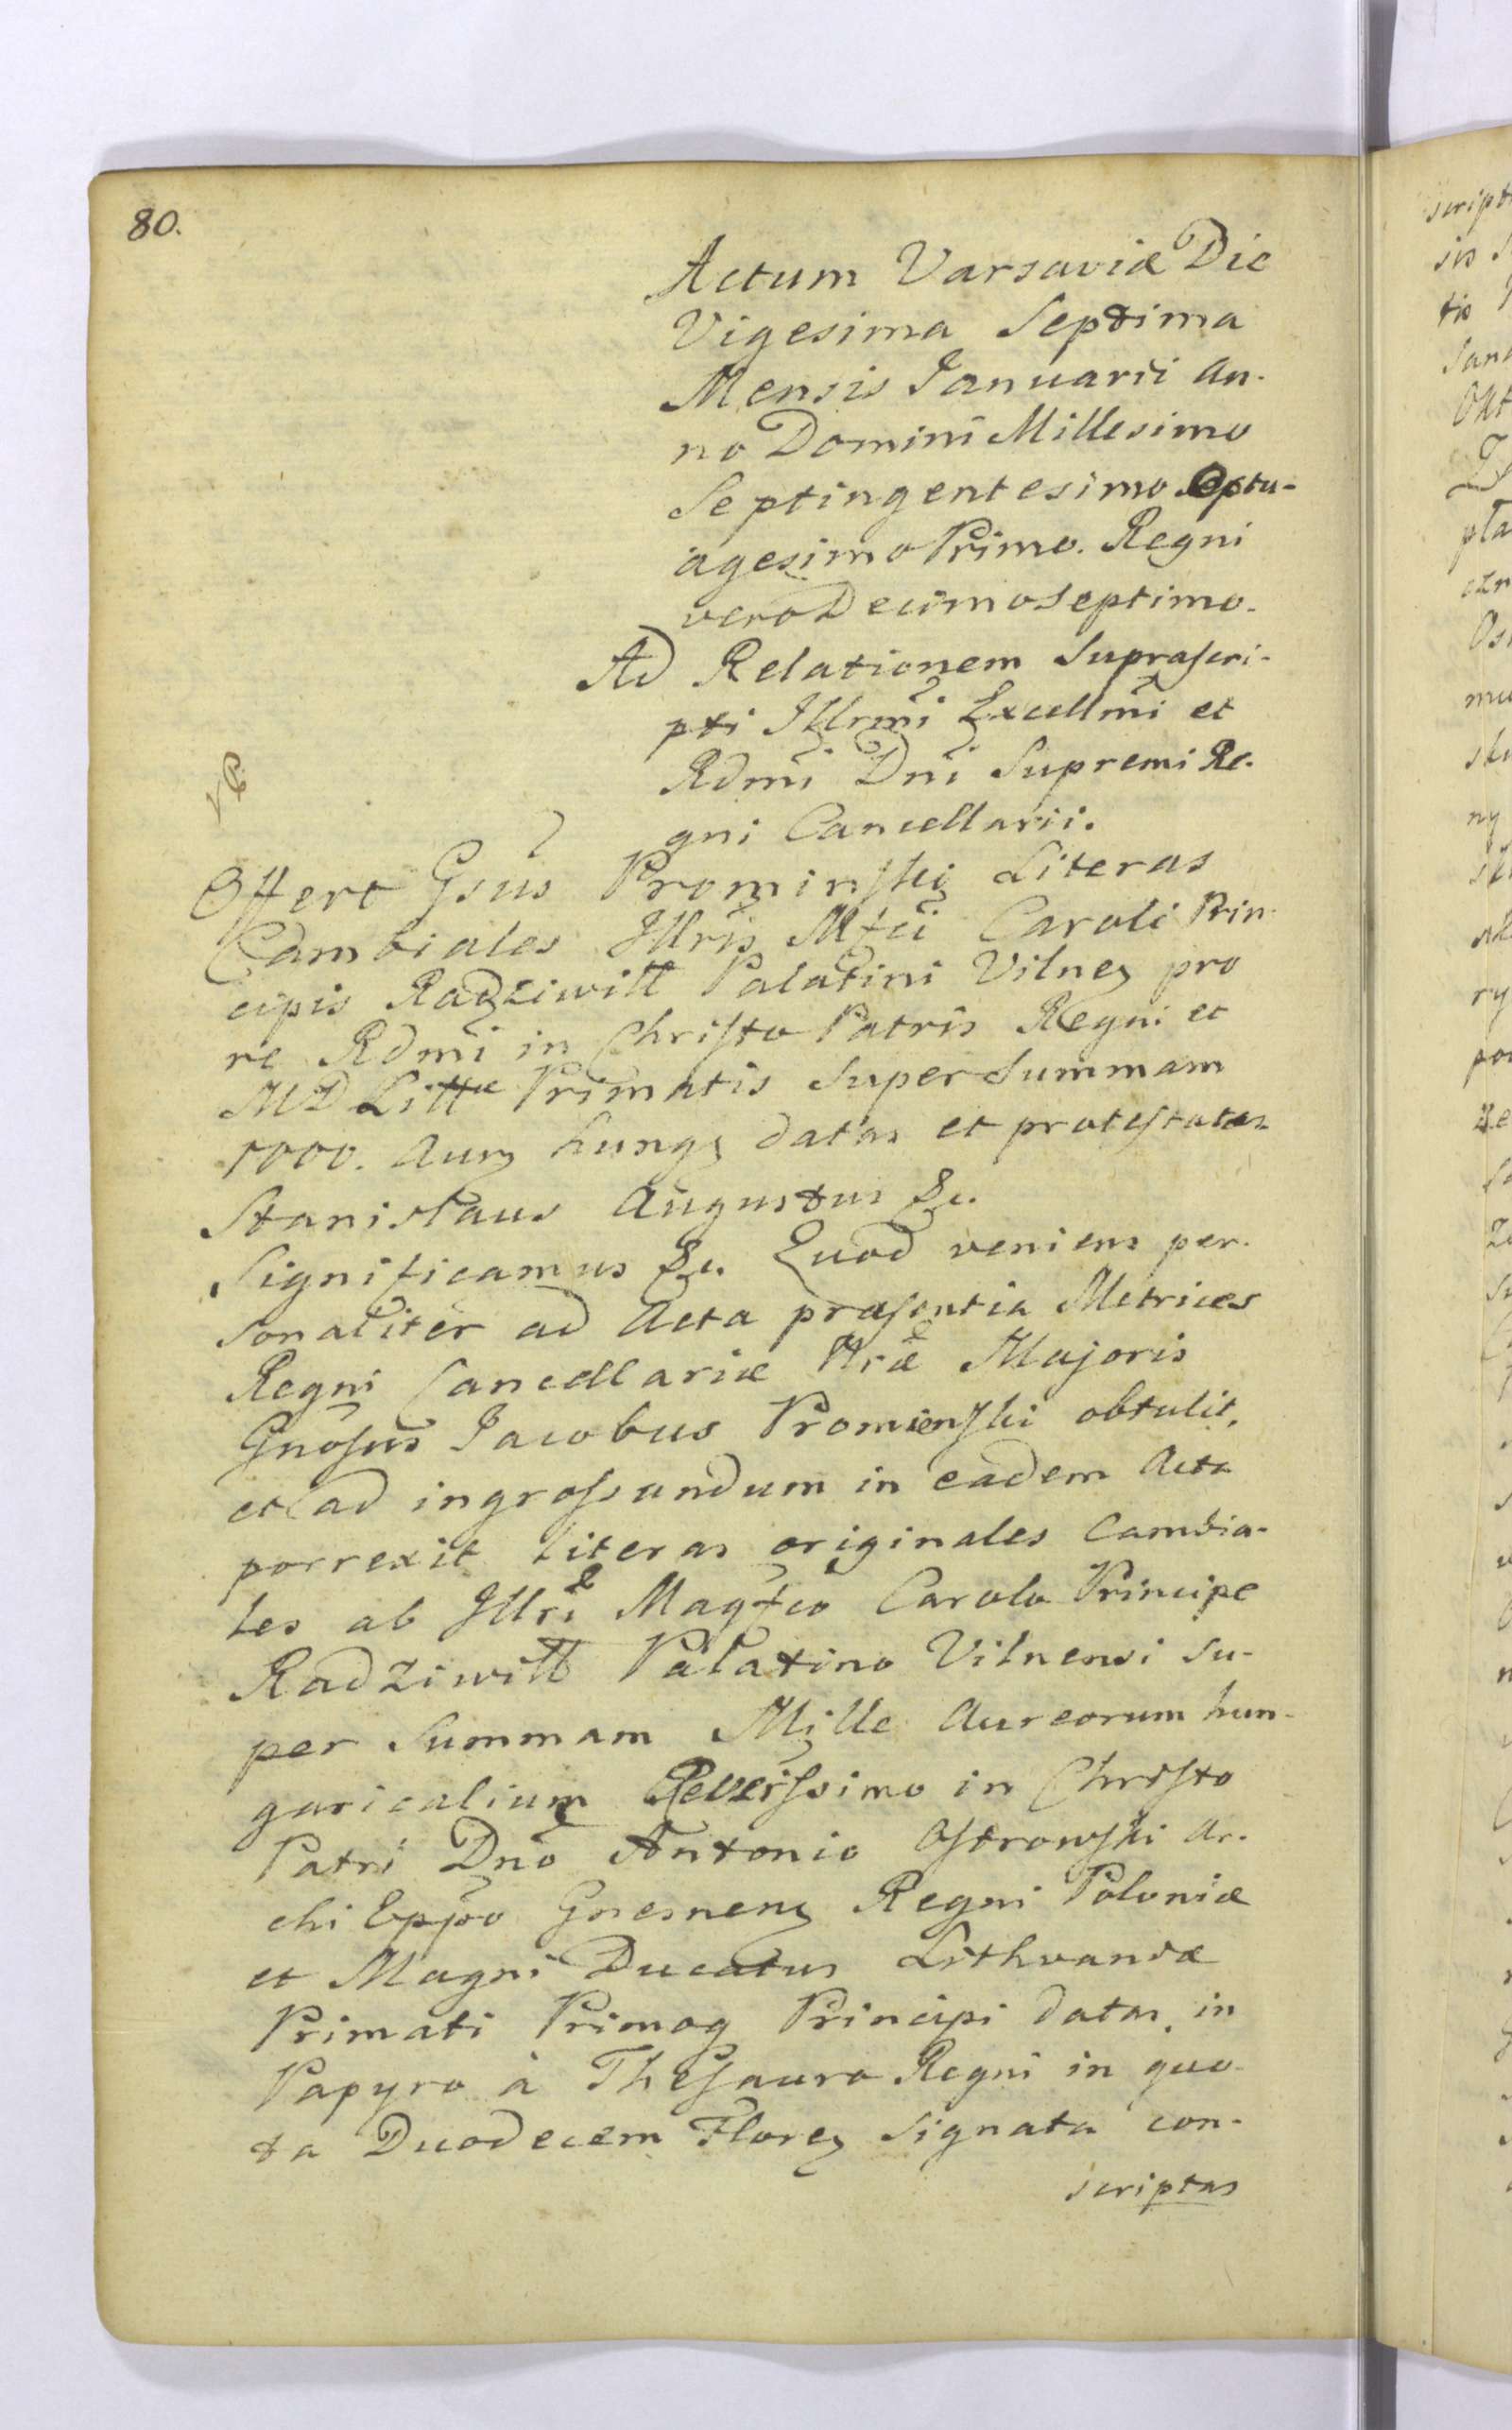 80.
Actum Varsaviæ Die
Vigesima Septima
Mensis Januarii An-
no Domini Millesimo
Septingentesimo Septu-
agesimo Primo. Regni
vero Decimo Septimo.
Ad Relationem Suprascri-
pti Illrmi Excellmi et
Rdmi Dni Supremi Re-
gni Cancellarii.
Offert Gsus Prominski Literas
Cambiales Illris Mfci Caroli Prin-
cipis Radziwiłł Palatini Vilnen pro
re Rdmi in Christo Patris Regni et
MD Litt Primatis Super Summam
1000. Aur hung datas et protestatas
Stanislaus Augustus &c.
Significamus &c. Quod veniens per-
sonaliter ad Acta præsentia Metrices
Regni Cancellariæ Nræ Majoris
Gnosus Jacobus Promienski obtulit,
et ad ingrossandum in eadem Acta
porrexit Literas originales Cambia-
les ab Illri Magfco Carolo Principe
Radziwiłł Palatino Vilnensi su-
per Summam Mille Aureorum hun-
garicalium Reverssimo in Christo
Patri Dno Antonio Ostrowski Ar-
chi Eppo Gnesnen Regni Poloniæ
et Magni Ducatus Lithvaniæ
Primati Primoq Principi datas, in
Papyro à Thesauro Regni in quo-
ta Duodecem Floren signata con-
scriptas